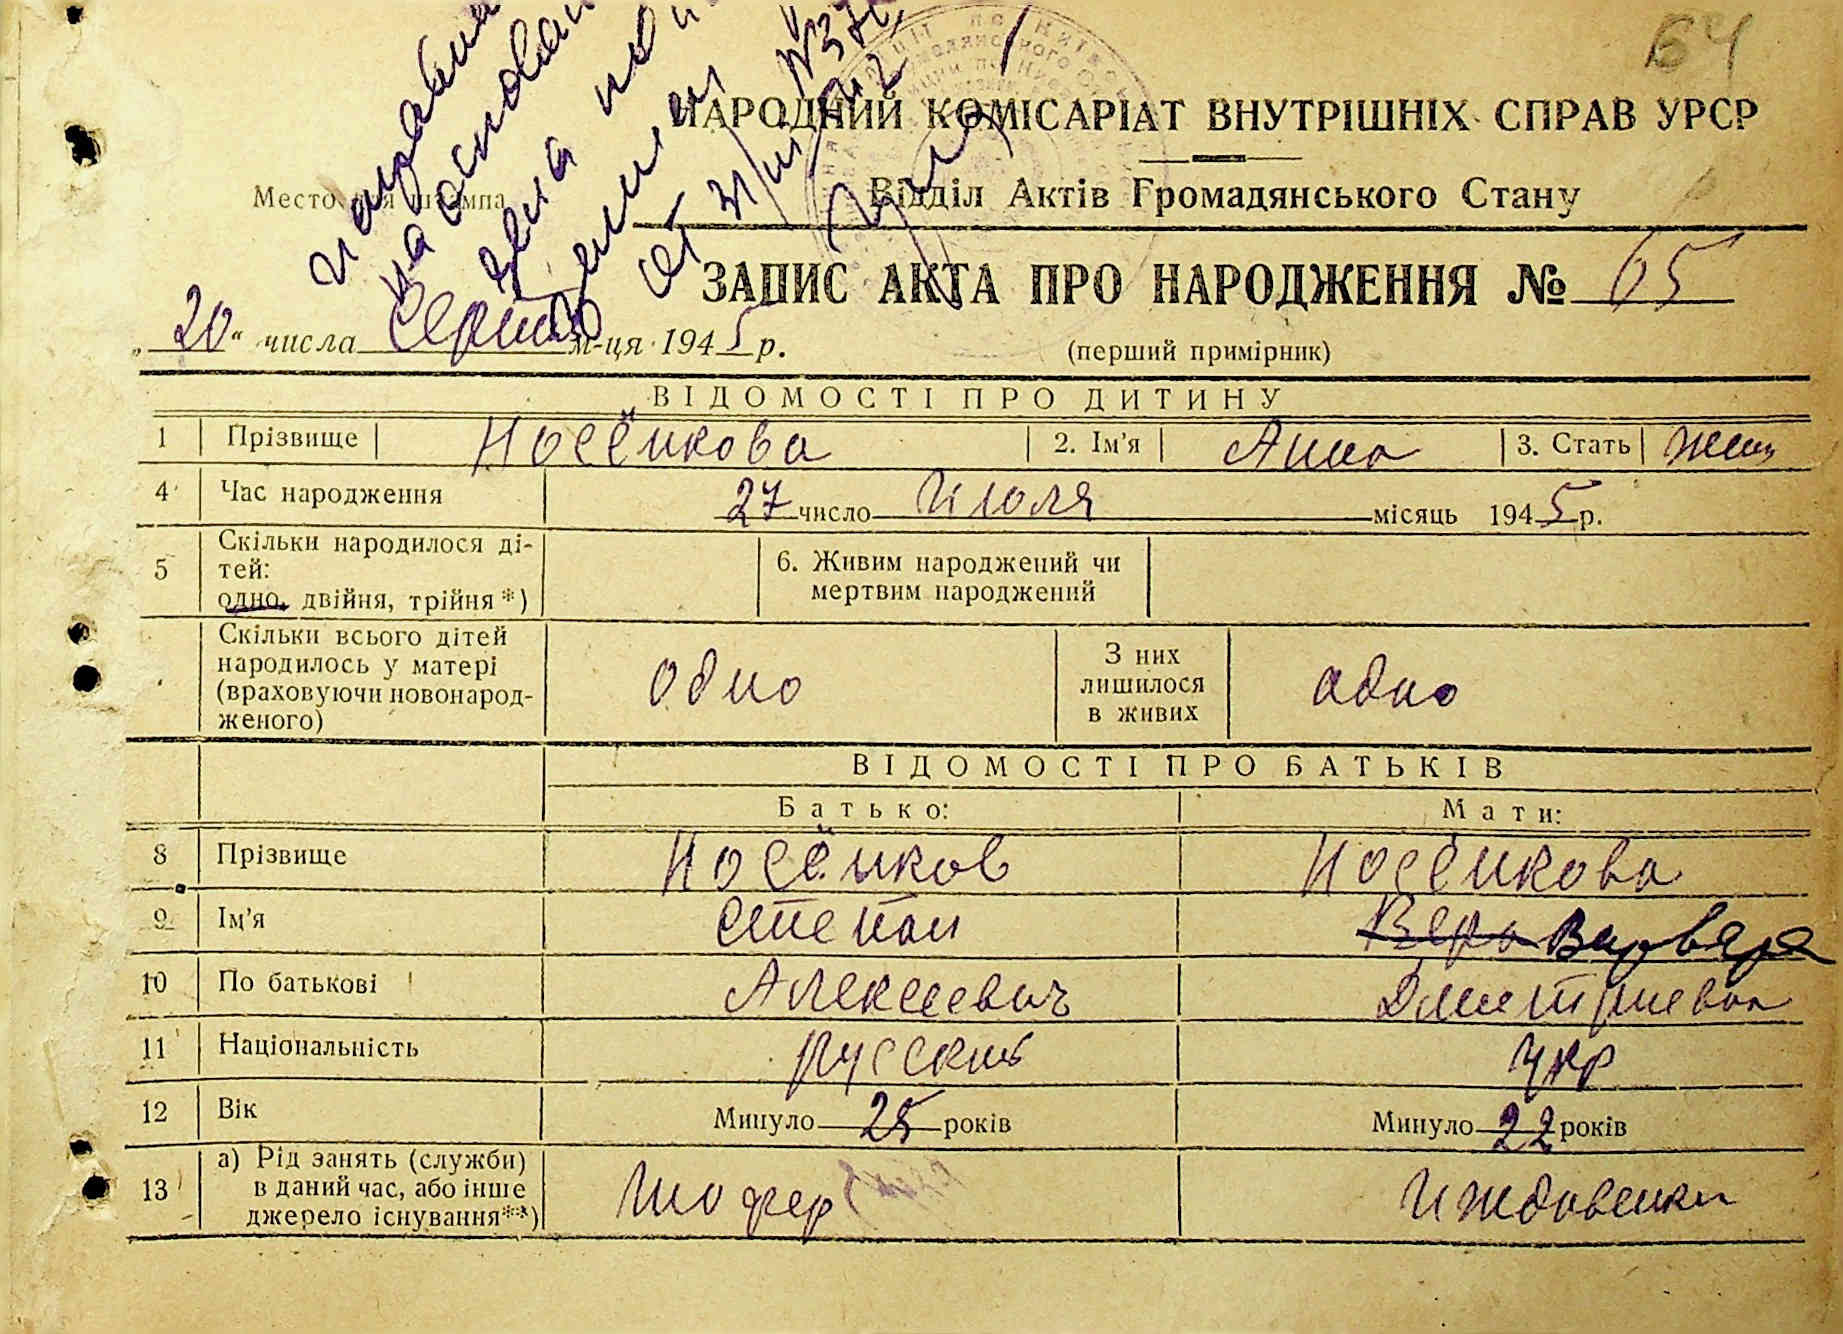 64
НАРОДНИЙ КОМІСАРІАТ ВНУТРІШНІХ СПРАВ УРСР
Відділ Актів Громадянського Стану
ЗАПИС АКТА ПРО НАРОДЖЕННЯ № 65
„20“ числа Серпня м-ця 1945 р.
(перший примірник)
ВІДОМОСТІ ПРО ДИТИНУ
1 Прізвище Носёнкова 2. Ім'я Анна 3. Стать жен
4 Час народження 27 число Июля місяць 1945 р.
5 Скільки народилося ді-
тей:
одно, двійня, трійня *)
6. Живим народжений чи
мертвим народжений
Скільки всього дітей
народилось у матері
(враховуючи новонарод-
женого)
одно
З них
лишилося
в живих
одно
ВІДОМОСТІ ПРО БАТЬКІВ
Батько: Мати:
8 Прізвище Носёнков Носёнкова
9 Ім'я Степан Вера Варвара
10 По батькові Алексеевич Дмитриевна
11 Національність русский укр
12 Вік Минуло 25 років Минуло 22 років
13 а) Рід занять (служби)
в даний час, або інше
джерело існування**)
Шофер Иждовенка